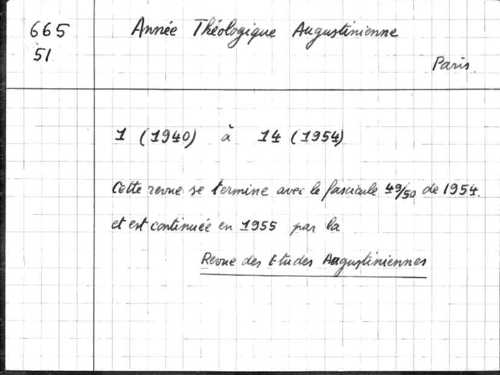 665 Année Théologique Augustinienne
51
Paris.
1 (1940) à 14 (1954)
Cette revue se termine avec le fascicule 49/50 de 1954.
et est continuée en 1955 par la
Revue des Etudes Augustiniennes